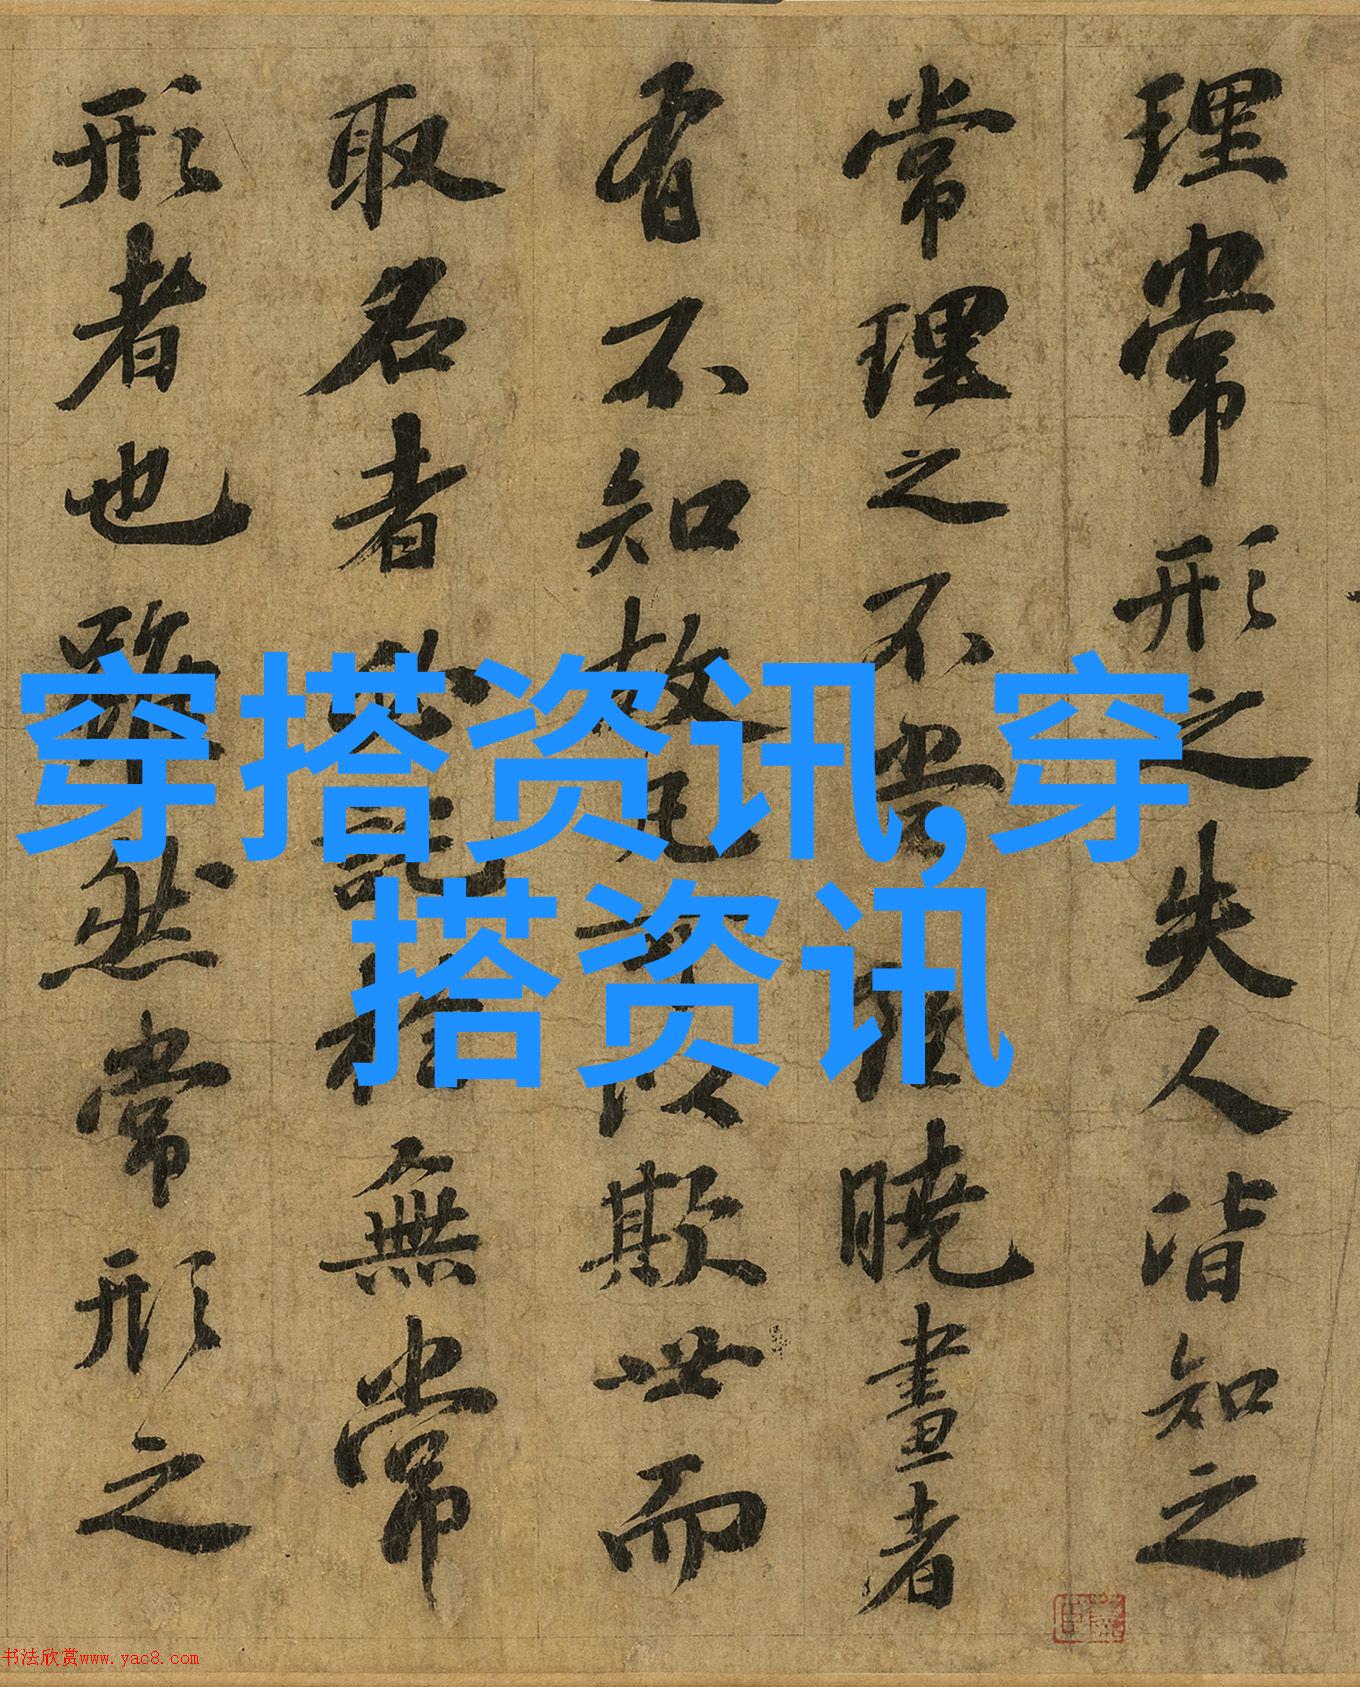 理常形之失人皆知之
常理之不當雖曉畫者
有不知故凡可以欺世而
取名者必託於無常
形者也雖然常形之
穿搭资讯,穿
搭资讯
书法欣赏www.yac8.com